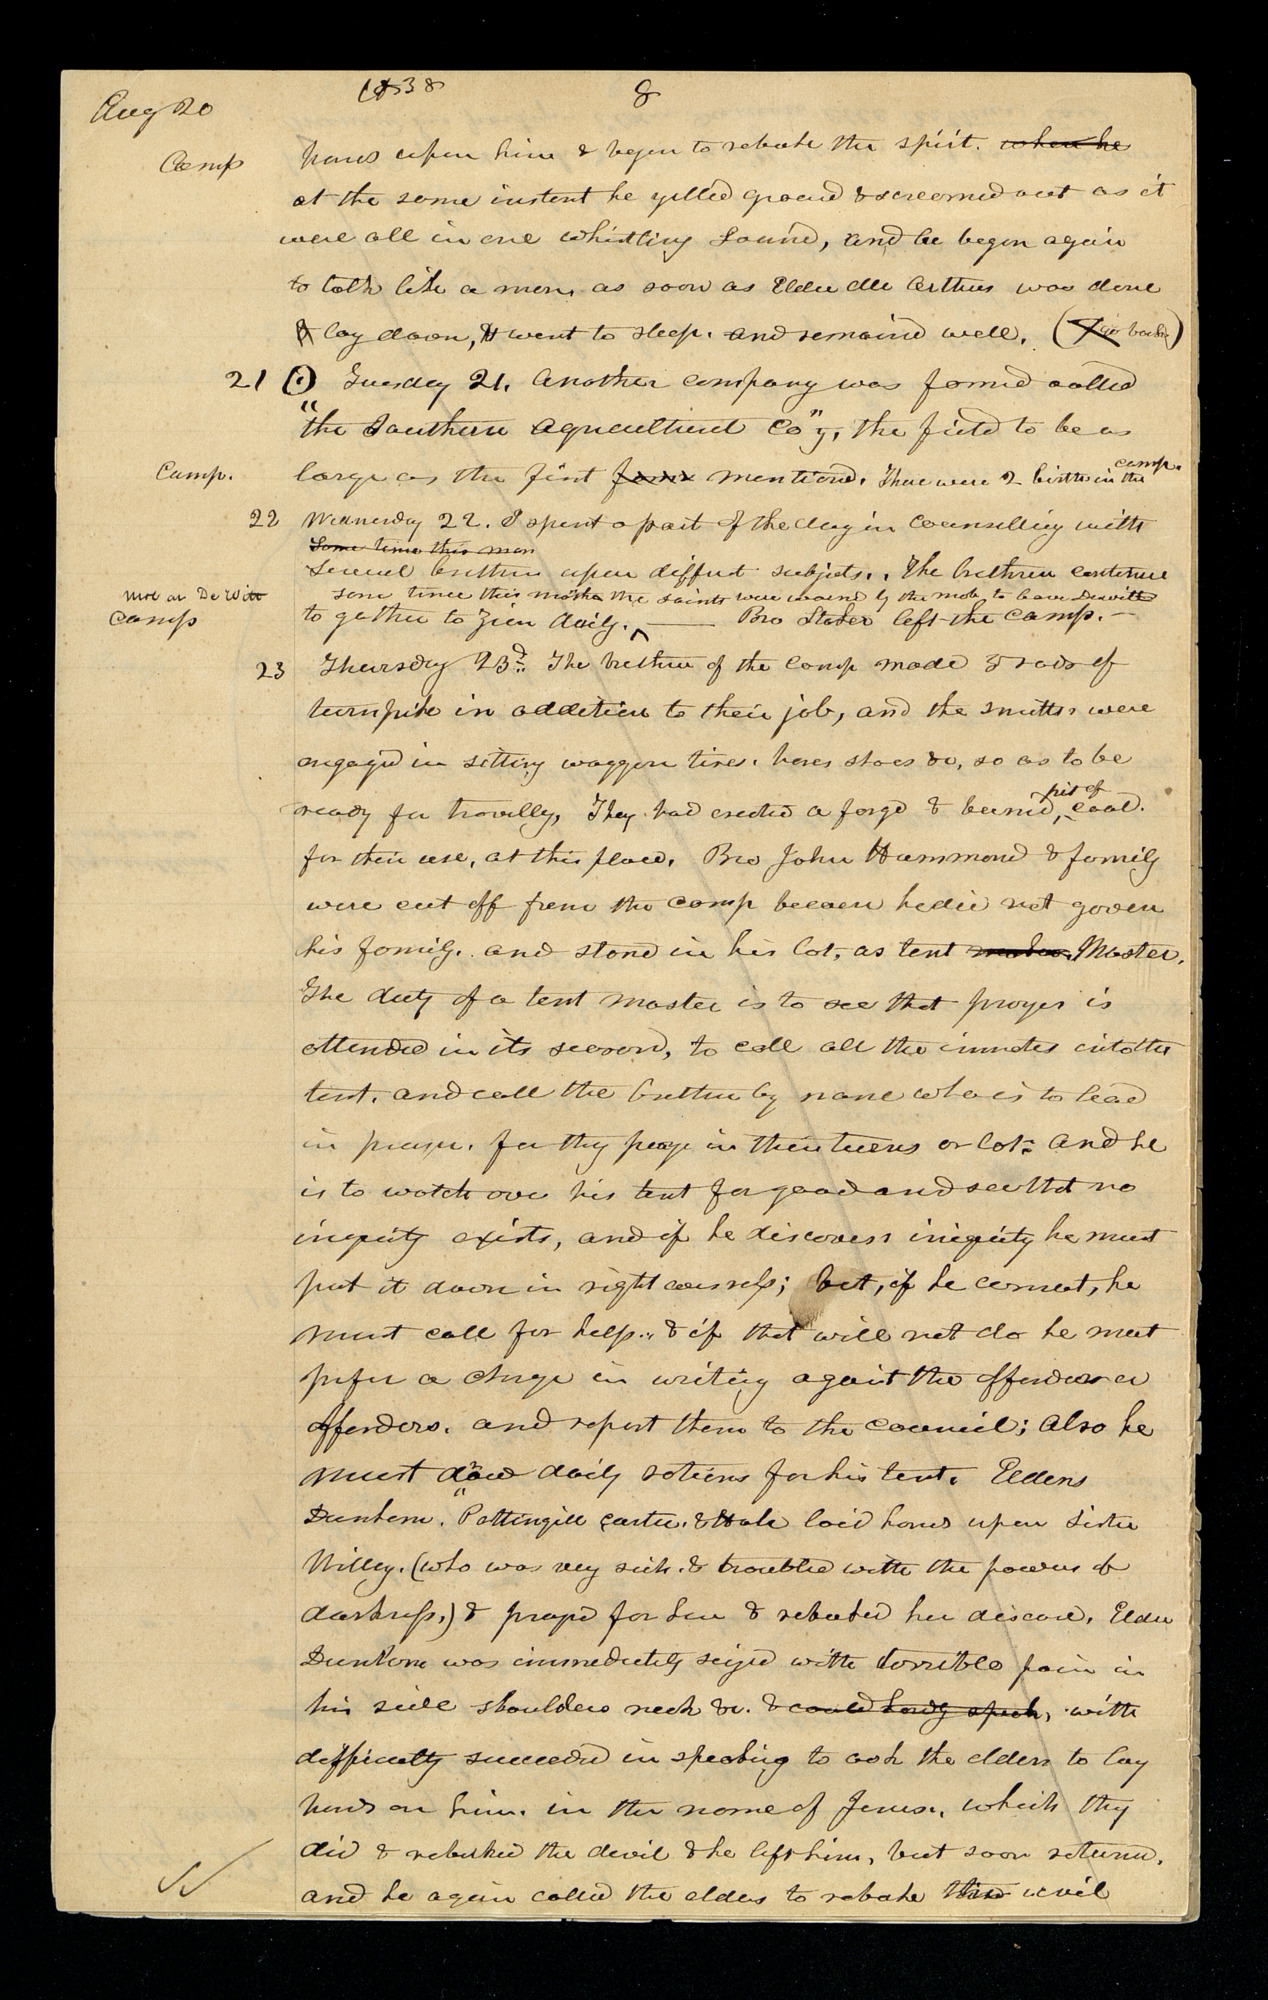 Aug 20 1838 8
Camp hands upon him & began to rebuke the spirit. when he
at the same instant he yelled groaned & screamed out as it
were all in one whistling sound, and he began again
to talk like a man, as soon as Elder Mc Arthur was done
& lay down, & went to sleep. and remained well. (go back)
21 Tuesday 21. Another company was formed called
"the Southern Agricultural Co"y, the field to be as
Camp. large as the first form mentiond. There were 2 births in the camp.
22 Wednesday 22. I spent a part of the day in counselling with
Some time this mon
several brethren upon diffret subjects. The brethren continue
Mob at De Witt some time this month the saints were warned by the mob to leave Dewitt
Camp to gather to Zion daily. Bro Stoker left the camp. —
23 Thursday 23d. The brethren of the camp made 3 rods of
turnpike in addition to their job, and the smiths were
engaged in setting waggon tires. horse shoes &c, so as to be
ready for travelling, They had erected a forge & burned, pit of coal.
for their use, at this place. Bro John Hammond & family
were cut off from the camp because he did not govern
his family. and stand in his lot, as tent Master.
The duty of a tent master is to see that prayer is
attended in its season, to call all the inmates into the
tent. and call the brethren by name who is to lead
in prayer. for they pray in their turns or lot: and he
is to watch over his tent for good and see that no
iniquity exists, and if he discovers iniquity he must
put it down in right[eo]usness; but, if he cannot, he
must call for help., & if that will not do he must
prefer a charge in writing against the offender or
offenders. and report them to the council; also he
must draw daily rations for his tent. Elders
Dunham. Pettingill Carter. & Hale laid hands upon Sister
Willey. (who was very sick. & troubled with the powers of
darkness,) & prayed for her & rebuked her disease. Elder
Dunham was immediately seized with terrible pain in
his side shoulders neck &c. & could hardly speak, with
difficulty succeeded in speaking to ask the elders to lay
hands on him. in the name of Jesus., which they
did & rebuked the devil & he left him, but soon returnd.
and he again called the elders to rebuke the devil